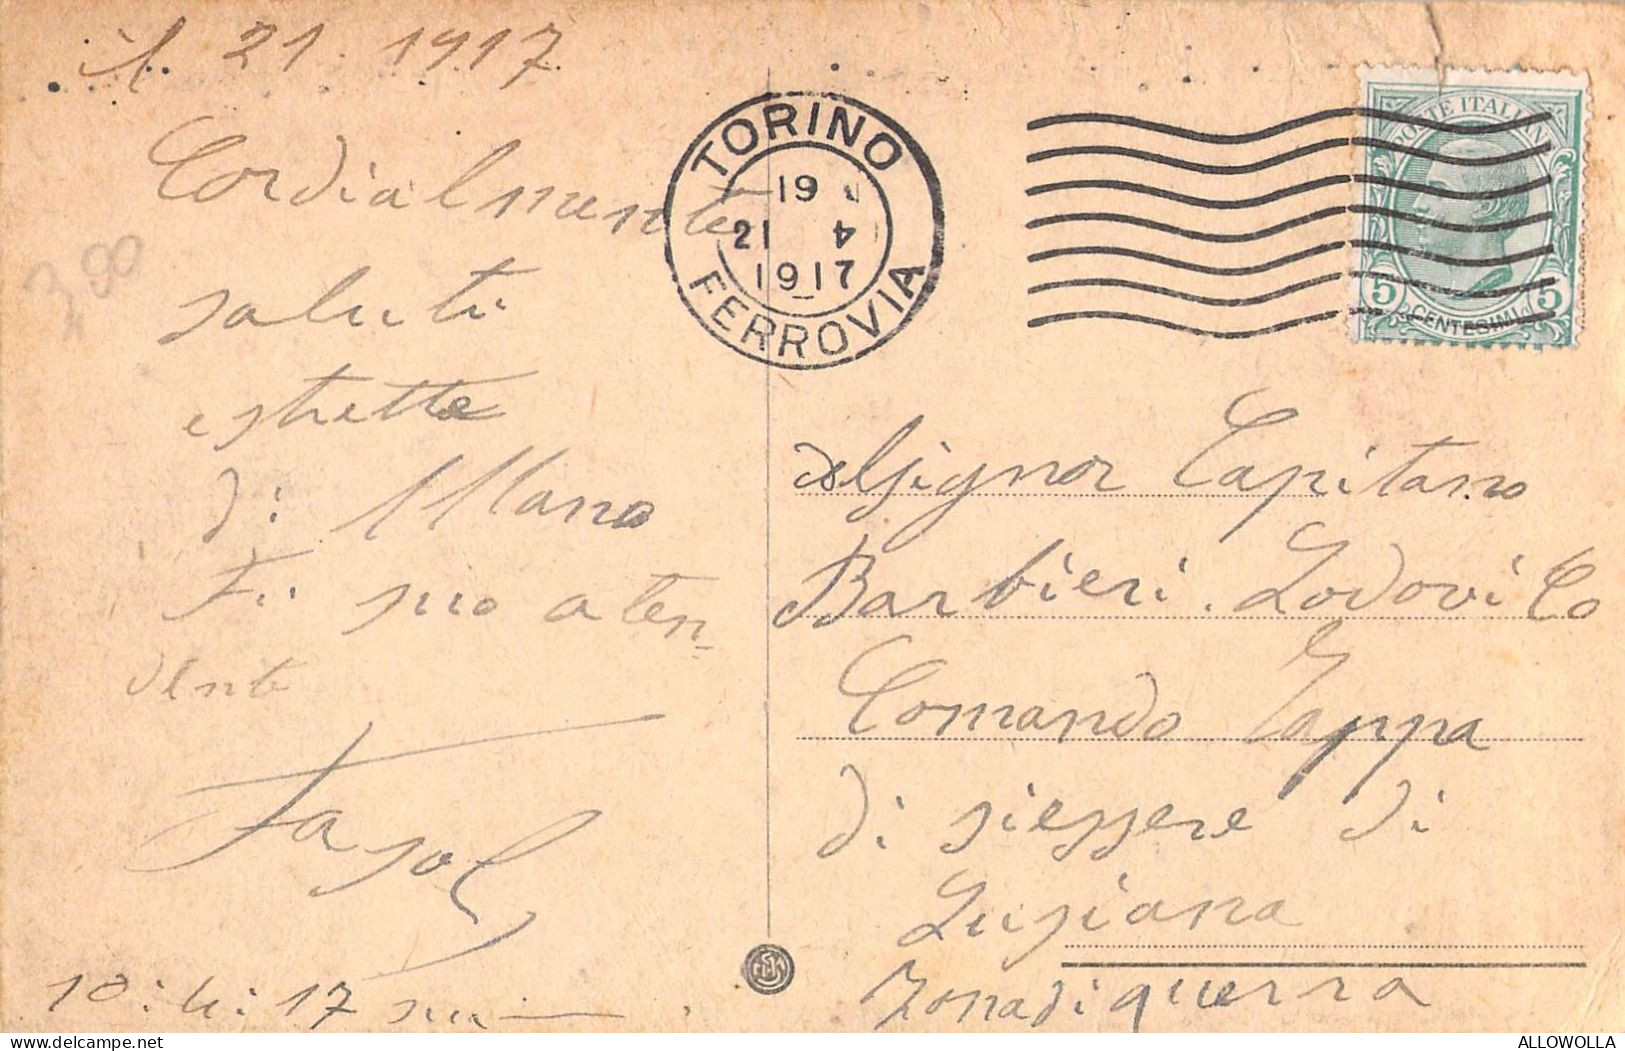 il 21 1917
Cordialmente
saluti
e strette
di Mano
suo aten
dente
Fasol
10:4:17
3,90
TORINO
19
21 4
1917
FERROVIA
POSTE ITALIANE
5 CENTESIMI 5
al Signor Capitano
Barbieri Lodovico
Comando Tappa
di siessere di
Lusiana
Zona di querra
ALLOWOLLA